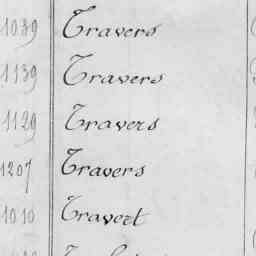 1039 Travers
1139 Travers
1129 Travers
1207 Travers
1010 Travert